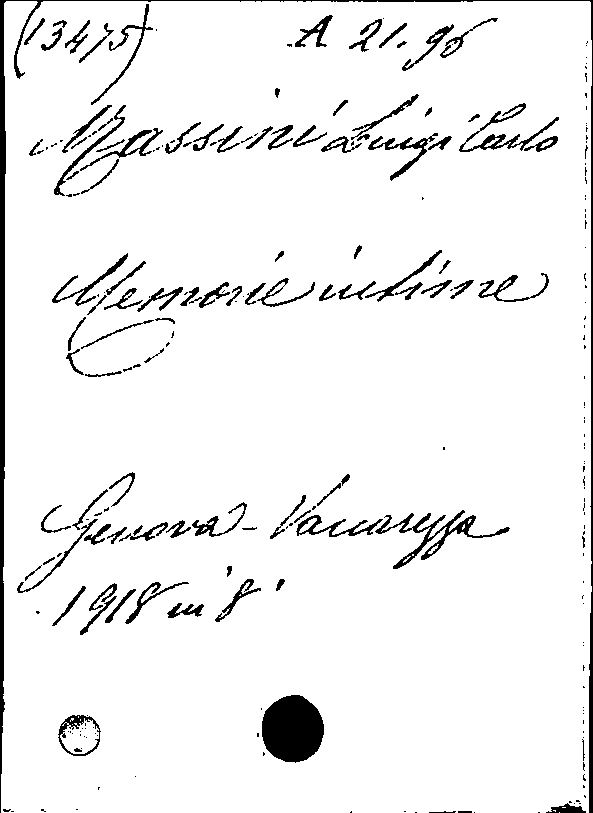 (13475) A 21.96
Massini Luigi Carlo
Memorie intime
Genova - Vaccarezza
1918 in 8°